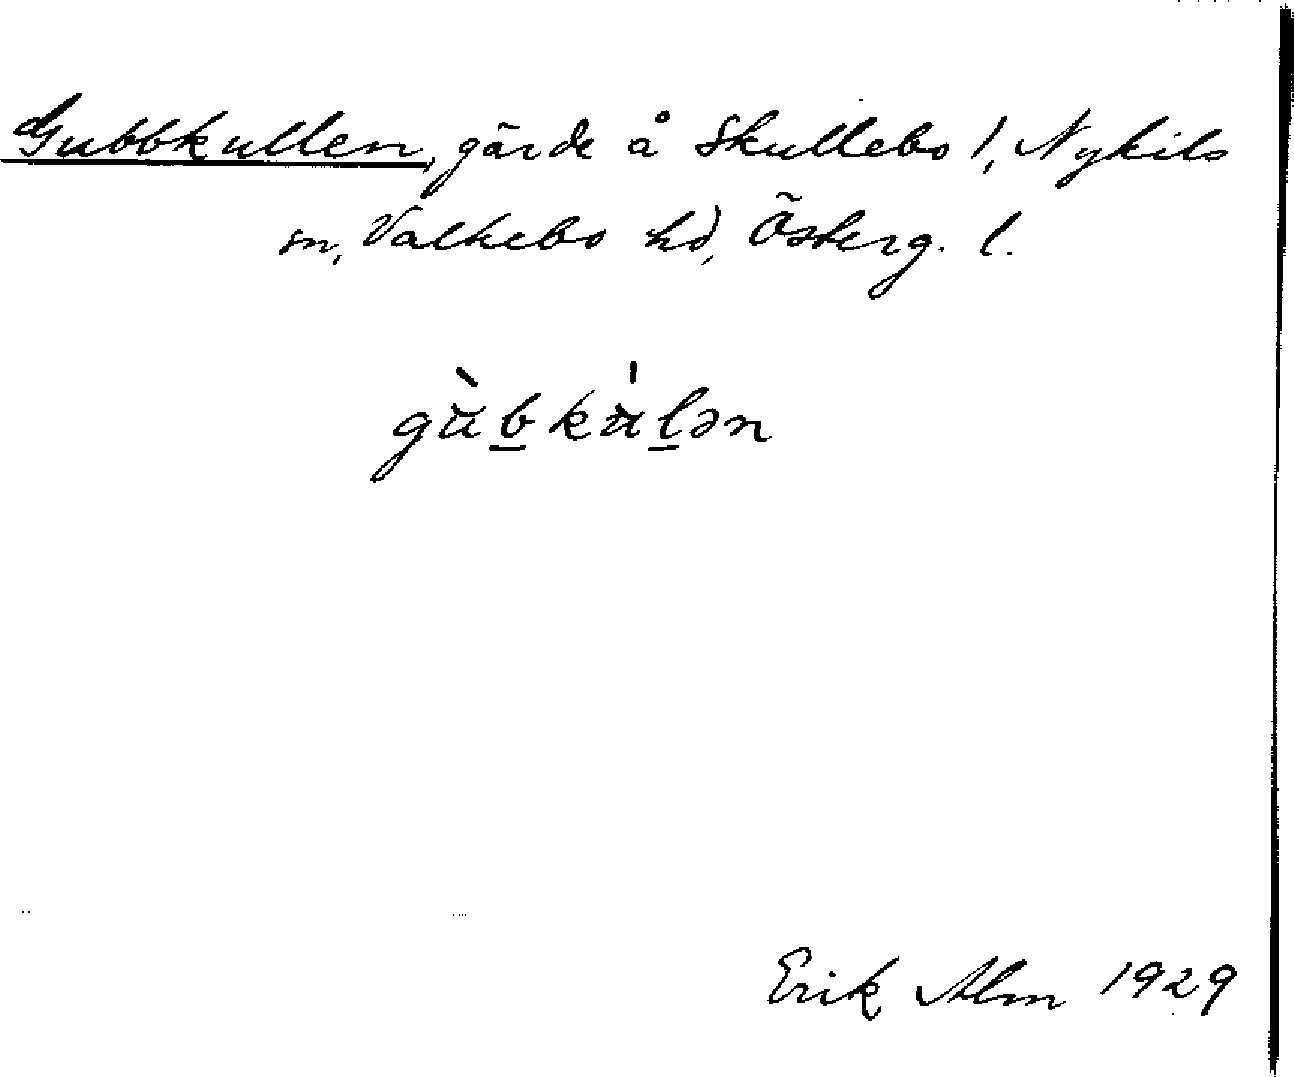 Gubbkullen, gärde å Skullebo 1, Nykils
sn, Valkebo hd, Österg. l.
gùb̲kùl̲ən
Erik Alm 1929